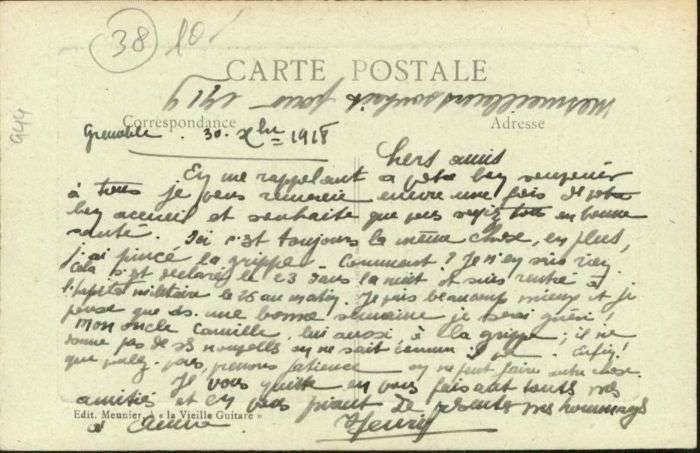 38 10
CARTE POSTALE
Mes meilleurs souhaits pour 1919
Correspondance Adresse
944
Grenoble. 30. Xbre 1918
Chers amis
En me rappelant à votre bon souvenir
à tous je vous remercie encore une fois de votre
bon accueil et souhaite que vous soyez tous en bonne
santé. Ici c'est toujours la même chose, en plus,
j'ai pincé la grippe. Comment? Je n'en sais rien.
Cela s'est déclaré le 23 dans la nuit et suis rentré à
l'hôpital militaire le 25 au matin. Je vais beaucoup mieux et je
pense que ds. une bonne semaine je serai guéri!
Mon oncle Camille, lui aussi à la grippe; il ne
donne pas de ses nouvelles on ne sait comment il va. Enfin!
que voulez-vous, prenons patience on ne peut faire autre chose.
Je vous quitte en vous faisant toutes mes
amitiés et en vous priant de présenter mes hommages
à
Henri
Edit. Meunier, à « la Vieille Guitare »